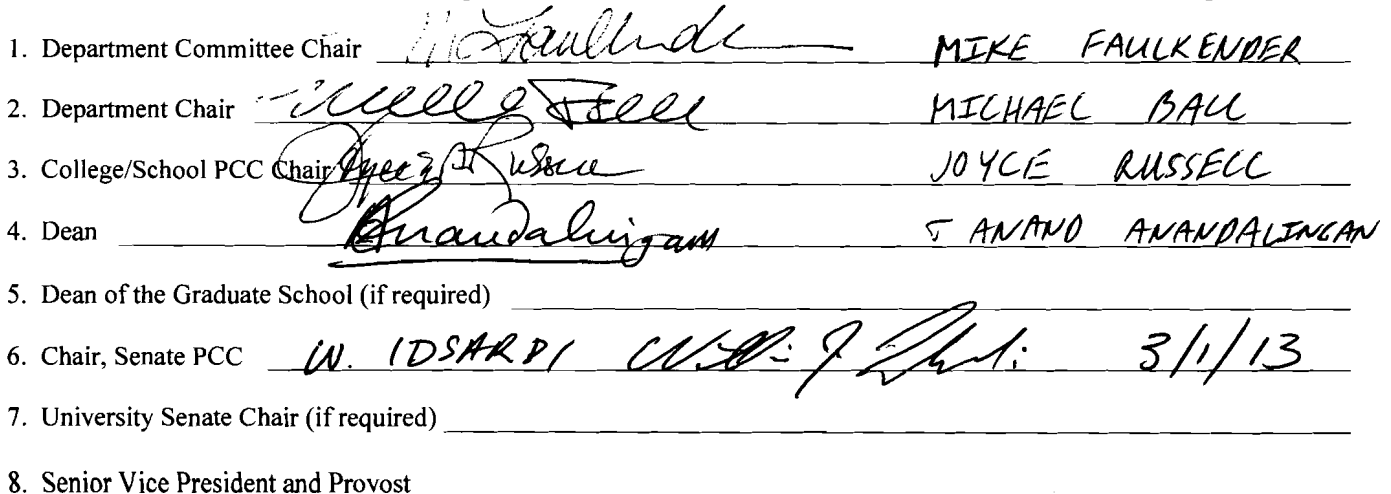 1. Department Committee Chair MIKE FAULKENDER
2. Department Chair MICHAEL BALL
3. College/School PCC Chair JOYCE RUSSELL
4. Dean Anandalingam ANAND ANANDALINGAN
5. Dean of the Graduate School (if required)
6. Chair, Senate PCC W. IDSARDI 3/1/13
7. University Senate Chair (if required)
8. Senior Vice President and Provost